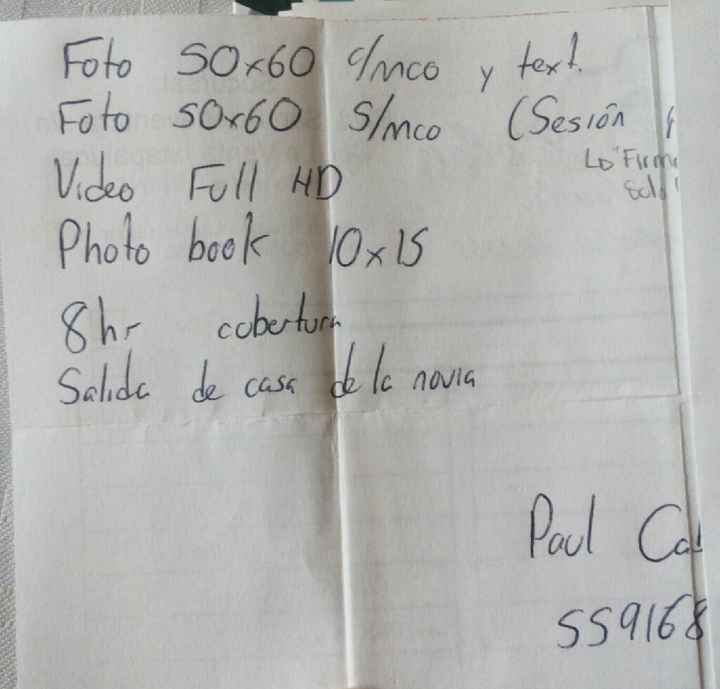 Foto 50x60 c/mco y text.
Foto 50x60 s/mco (Sesión
Lo "Firm
Video Full HD
Photo book 10x15
8hr cobertura
Salida de casa de la novia
Paul Ca
559168